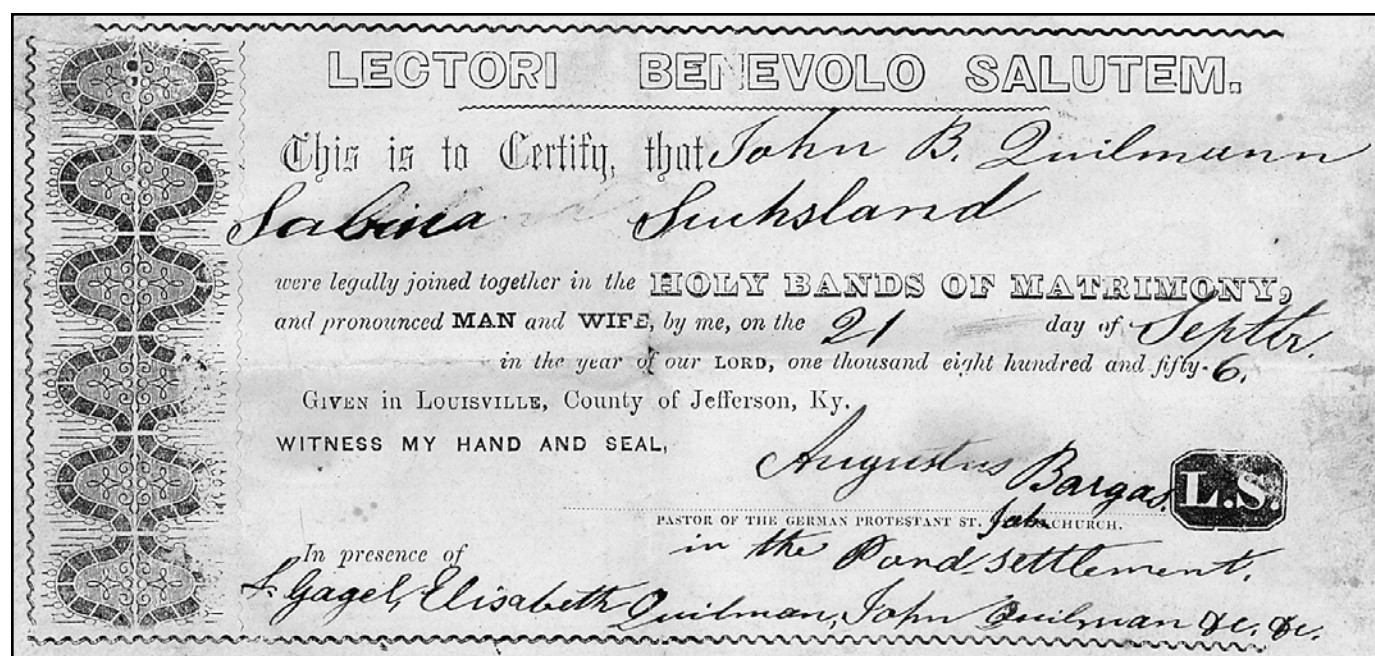 LECTORI BENEVOLO SALUTEM.
This is to Certify, that John B. Quilmann
Sabina Suchsland
were legally joined together in the HOLY BANDS OF MATRIMONY,
and pronounced MAN and WIFE, by me, on the 21 day of Septbr.
in the year of our LORD, one thousand eight hundred and fifty-6.
GIVEN in LOUISVILLE, County of Jefferson, Ky.
WITNESS MY HAND AND SEAL,
Augustus Bargas. L.S.
PASTOR OF THE GERMAN PROTESTANT ST. CHURCH.
in the Pond-settlement.
In presence of
Gagel, Elisabeth Quilman, John Quilman &c. &c.